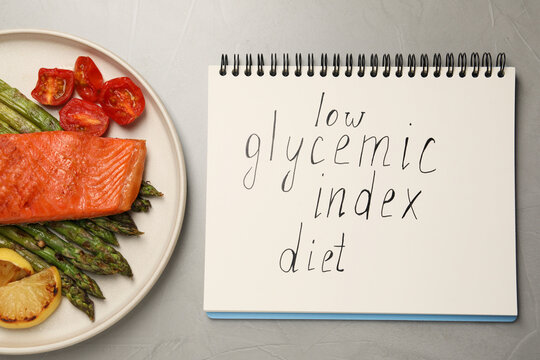 low
glycemic
index
diet